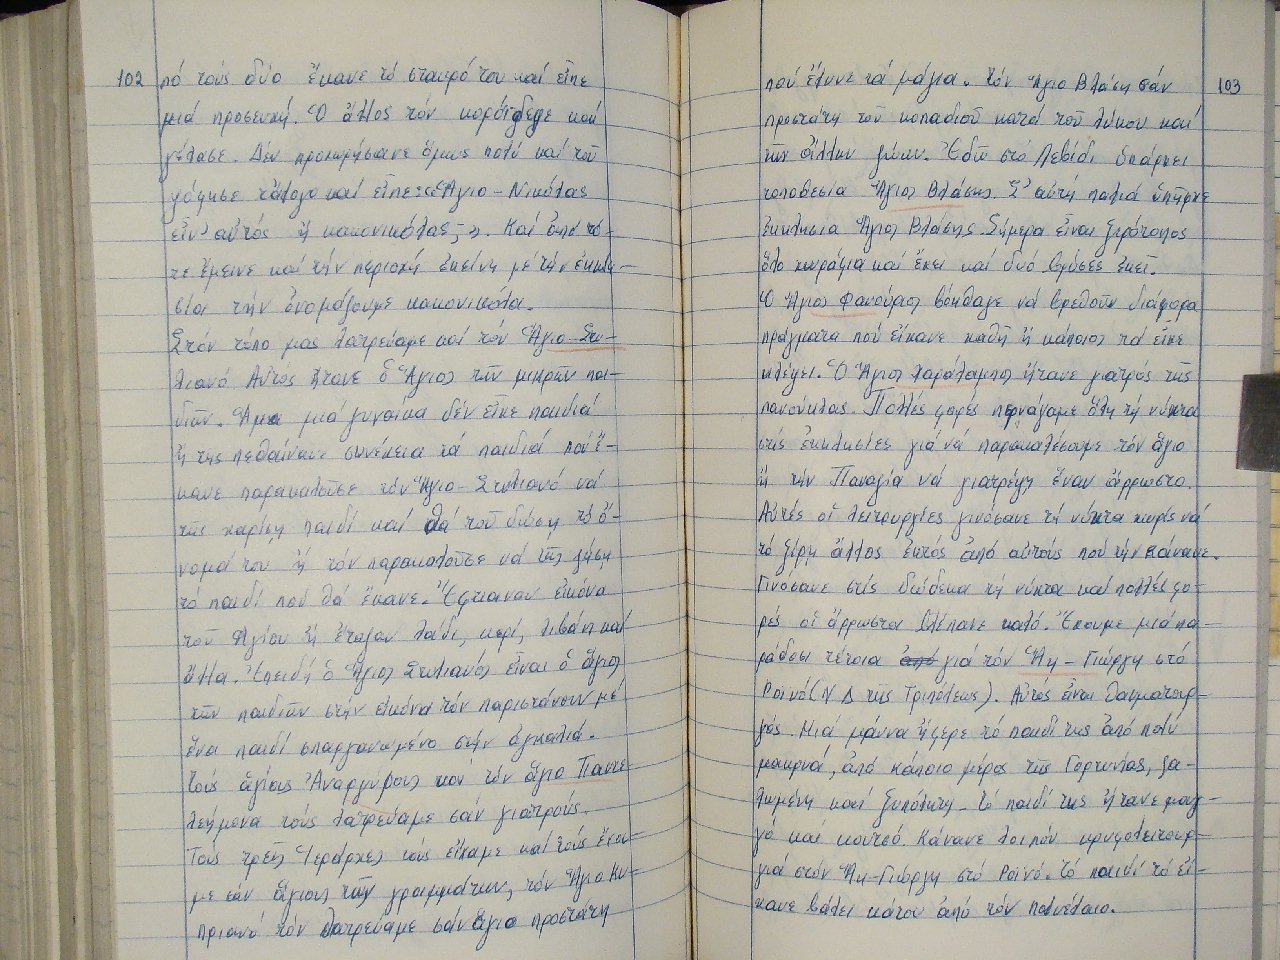 102
πό τούς δύο ἔκανε τό σταυρό του καί εἶπε
μιά προσευχή. Ὁ ἄλλος τόν κορόϊδεψε καί
γέλασε. Δέν προχωρήσανε ὅμως πολύ καί τοῦ
ψόφησε τἄλογο καί εἶπε: «Ἅγιο-Νικόλας
εἶν' αὐτός ἤ κακονικόλας;». Καί ἀπό τό-
τε ἔμεινε καί τήν περιοχή ἐκείνη μέ τήν ἐκκλη-
σία τήν ὀνομάζουμε κακονικόλα.
Στόν τόπο μας λατρεύαμε καί τόν Ἅγιο-Στυ-
λιανό Αὐτός ἤτανε ὁ Ἅγιος τῶν μικρῶν παι-
διῶν. Ἅμα μιά γυναίκα δέν εἶχε παιδιά
ἤ της πεθαίνανε συνέχεια τά παιδιά πού ἔ-
κανε παρακαλοῦσε τόν Ἅγιο-Στυλιανό νά
τῆς χαρίση παιδί καί θά τοῦ δώση τό ὄ-
νομά του ἤ τόν παρακαλοῦσε νά τῆς ζήση
τό παιδί πού θά ἔκανε. Ἔφτιαναν εἰκόνα
τοῦ Ἁγίου ἤ ἔταζαν λάδι, κερί, λιβάνι καί
ἄλλα. Ἐπειδή ὁ Ἅγιος Στυλιανός εἶναι ὁ ἅγιος
τῶν παιδιῶν στήν εἰκόνα τόν παριστάνουν μέ
ἕνα παιδί σπαργανωμένο στήν ἀγκαλιά.
Τούς ἁγίους Ἀναργύρους καί τόν ἅγιο Παντε-
λεήμονα τούς λατρεύαμε σάν γιατρούς.
Τούς τρεῖς Ἱεράρχες τούς εἴχαμε καί τούς ἔχου-
με σάν ἅγιους τῶν γραμμάτων, τόν Ἅγιο Κυ-
πριανό τόν λατρεύαμε σάν ἅγιο προστάτη
103
πού ἔλυνε τά μάγια. Τόν Ἅγιο Βλάση σάν
προστάτη τοῦ κοπαδιοῦ κατά τοῦ λύκου καί
τῶν ἄλλων ζώων. Ἐδῶ στό Λεβίδι ὑπάρχει
τοποθεσία Ἅγιος Βλάσης. Σ' αὐτή παλιά ὑπῆρχε
ἐκκλησία Ἅγιος Βλάσης. Σήμερα εἶναι ξερότοπος
ὅλο χωράφια καί ἔχει καί δυό βρύσες ἐκεῖ.
Ὁ Ἅγιος Φανούρης βόηθαγε νά βρεθοῦν διάφορα
πράγματα πού εἴχανε χαθῆ ἤ κάποιος τά εἶχε
κλέψει. Ὁ Ἅγιος Χαράλαμπος ἤτανε γιατρός τῆς
πανούκλας. Πολλές φορές περνάγαμε ὅλη τή νύχτα
στίς ἐκκλησίες γιά νά παρακαλέσουμε τόν ἅγιο
ἤ τήν Παναγία νά γιατρέψη ἕναν ἄρρωστο.
Αὐτές οἱ λειτουργίες γινόσανε τή νύχτα χωρίς νά
τό ξέρη ἄλλος ἐκτός ἀπό αὐτούς πού τήν κάνανε.
Γινόσανε στίς δώδεκα τή νύχτα καί πολλές φο-
ρές οἱ ἄρρωστοι βλέπανε καλό. Ἔχουμε μιά πα-
ράδοση τέτοια ἀπό γιά τόν Ἅη-Γιώργη στό
Ροϊνό (Ν Δ της Τριπόλεως). Αὐτός εἶναι θαυματουρ-
γός. Μιά μάννα ἤφερε τό παιδί της ἀπό πολύ
μακρυά, ἀπό κάποιο μέρος τῆς Γορτυνίας, ζα-
λωμένη καί ξυπόλυτη. Τό παιδί της ἤτανε μουγ-
γό καί κουτσό. Κάνανε λοιπόν κρυφολειτουρ-
γιά στόν Ἅη-Γιώργη στό Ροϊνό. Τό παιδί τό εἴ-
χανε βάλει κάτου ἀπό τόν πολυέλαιο.